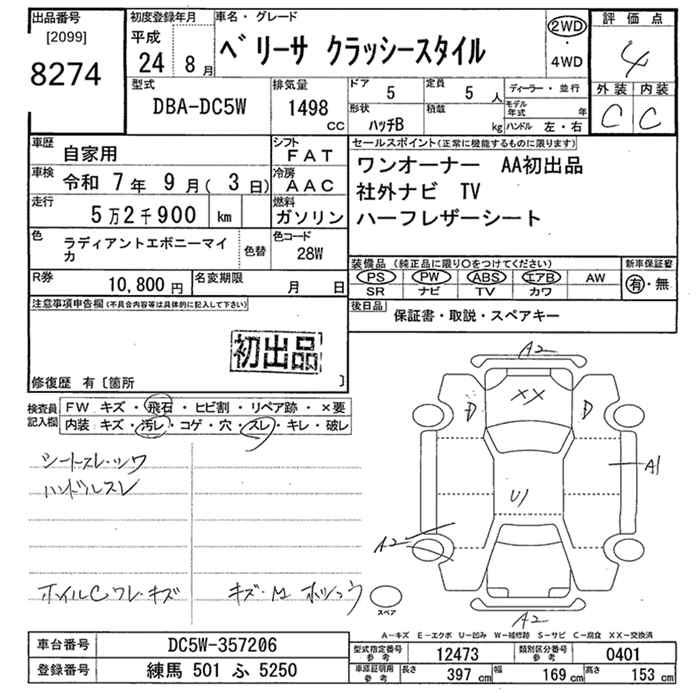 出品番号
[2099]
8274
初度登録年月
平成
24 8月
車名・グレード
ベリーサ クラッシースタイル
2WD
・
4WD
評価点
4
外装 内装
C C
型式
DBA-DC5W
排気量
1498
CC
ドア
5
定員
5 人
形状
ハッチB
積載
kg
ディーラー・並行
モデル年式 年
ハンドル 左・右
車歴
自家用
シフト
FAT
車検
令和 7年 9月( 3日)
冷房
AAC
走行
5万2千900 km
燃料
ガソリン
色
ラディアントエボニーマイカ
色替
色コード
28W
R券
10,800円
名変期限
月 日
セールスポイント(正常に機能するものに限ります)
ワンオーナー AA初出品
社外ナビ TV
ハーフレザーシート
装備品 (純正品に限り○をつけてください)
PS PW ABS エアB AW
SR ナビ TV カワ
新車保証書
有・無
後日品
保証書・取説・スペアキー
注意事項申告欄(不具合内容等は具体的に記入して下さい)
初出品
修復歴 有〔箇所 〕
検査員
記入欄
FW キズ・飛石・ヒビ割・リペア跡・×要
内装:キズ・汚レ・コゲ・穴・スレ・キレ・破レ
シートスレ・シワ
ハンドルスレ
ホイルCワレ・キズ
A2
XX
A1
U1
A2
A2
スペア
A-キズ E-エクボ U-凹み W-補修跡 S-サビ C-腐食 XX-交換済
車台番号
DC5W-357206
登録番号
練馬 501 ふ 5250
型式指定番号
参考
12473
類別区分番号
参考
0401
車庫証明用
参考
長さ 397 cm
幅 169 cm
高さ 153 cm